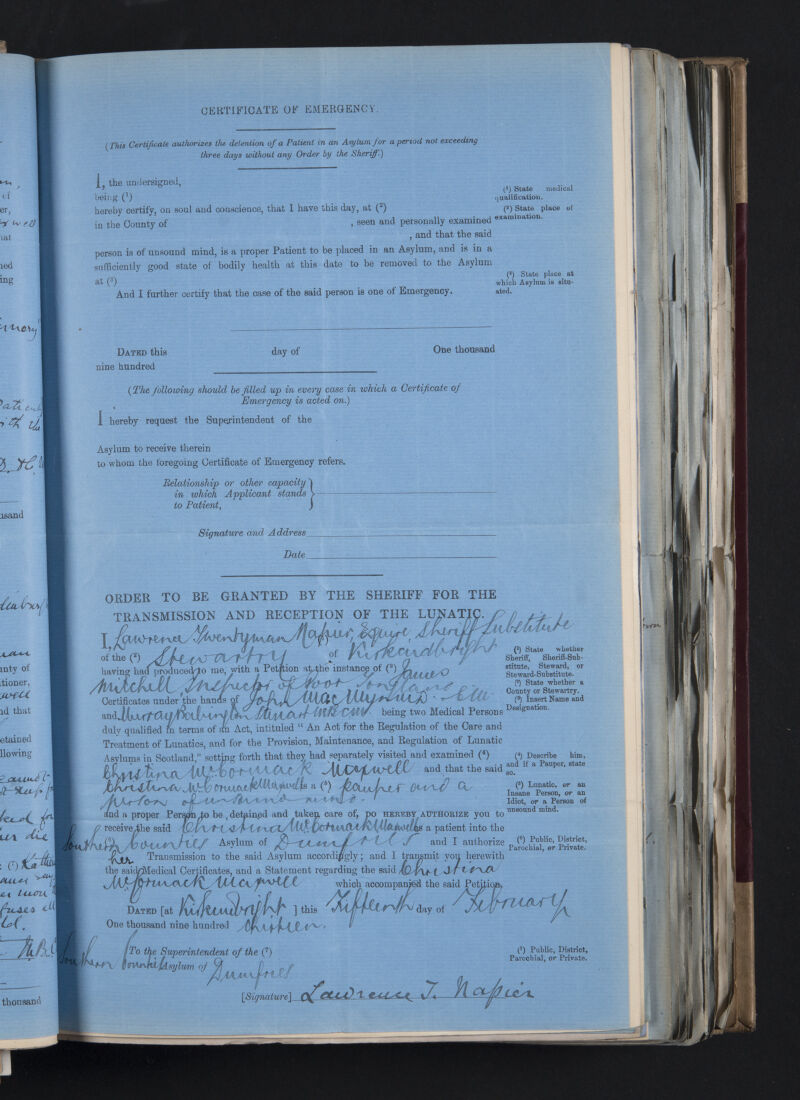 CERTIFICATE OF EMERGENCY.
(This Certificate authorizes the detention of a Patient in an Asylum for a period not exceeding
three days without any Order by the Sheriff.)
I, the undersigned,
being (¹)
(¹) State medical
qualification.
hereby certify, on soul and conscience, that I have this day, at (²)
(²) State place of
examination.
in the County of , seen and personally examined
, and that the said
person is of unsound mind, is a proper Patient to be placed in an Asylum, and is in a
sufficiently good state of bodily health at this date to be removed to the Asylum
at (³)
(³) State place at
which Asylum is situ-
ated.
And I further certify that the case of the said person is one of Emergency.
DATED this day of One thousand
nine hundred
(The following should be filled up in every case in which a Certificate of
Emergency is acted on.)
I hereby request the Superintendent of the
Asylum to receive therein
to whom the foregoing Certificate of Emergency refers.
Relationship or other capacity
in which Applicant stands
to Patient,
Signature and Address
Date
ORDER TO BE GRANTED BY THE SHERIFF FOR THE
TRANSMISSION AND RECEPTION OF THE LUNATIC.
I, Lawrence Twentyman Napier, Esquire, Sheriff Substitute
of the (²) Stewartry of Kirkcudbright
(¹) State whether
Sheriff, Sheriff-Sub-
stitute, Steward, or
Steward-Substitute.
having had produced to me, with a Petition at the instance of (³) James
(²) State whether a
County or Stewartry.
Mitchell, Inspector of Poor
(³) Insert Name and
Designation.
Certificates under the hands of John Mac
and Murray Stewart being two Medical Persons
duly qualified in terms of an Act, intituled "An Act for the Regulation of the Care and
Treatment of Lunatics, and for the Provision, Maintenance, and Regulation of Lunatic
Asylums in Scotland," setting forth that they had separately visited and examined (⁴)
(⁴) Describe him,
and if a Pauper, state
so.
Christina McCormack Maxwell and that the said
Christina McCormack Maxwell is a (⁵) pauper and a
(⁵) Lunatic, or an
Insane Person, or an
Idiot, or a Person of
unsound mind.
person of unsound mind.
and a proper Person to be detained and taken care of, DO HEREBY AUTHORIZE you to
receive the said Christina McCormack Maxwell as a patient into the
Southern Counties Asylum of Dumfries and I authorize
(⁶) Public, District,
Parochial, or Private.
her Transmission to the said Asylum accordingly; and I transmit you herewith
the said Medical Certificates, and a Statement regarding the said Christina
McCormack Maxwell which accompanied the said Petition,
DATED [at Kirkcudbright ] this Fifteenth day of February
One thousand nine hundred thirteen.
To the Superintendent of the (⁷)
(⁷) Public, District,
Parochial, or Private.
Southern Counties Asylum of Dumfries
[Signature] Lawrence T. Napier
usand
thousand